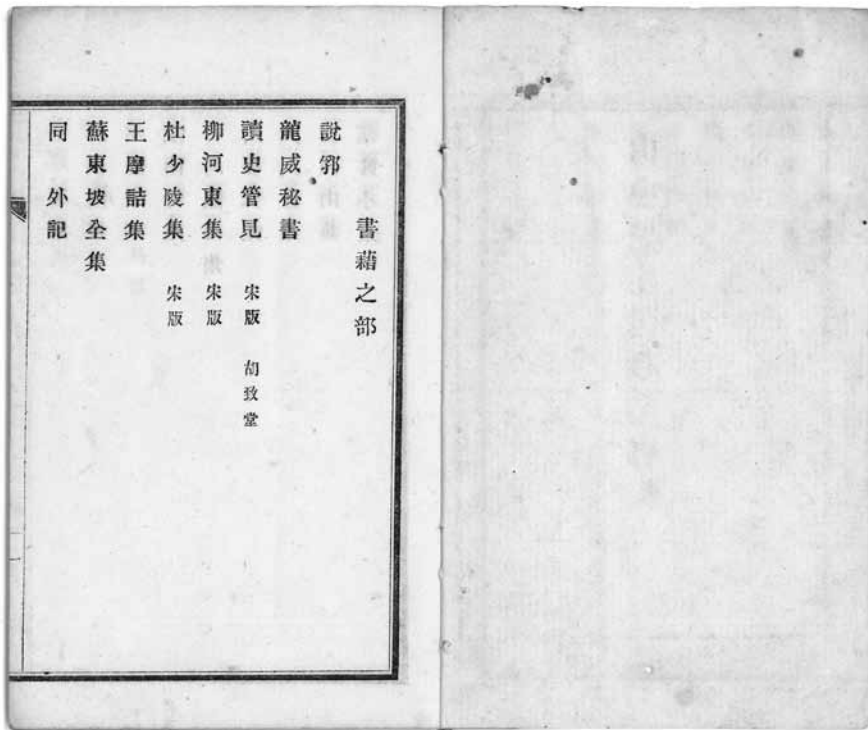 書藉之部
說郛
龍威秘書
讀史管見 宋版 胡致堂
柳河東集 宋版
杜少陵集 宋版
王摩詰集
蘇東坡全集
同 外記
一